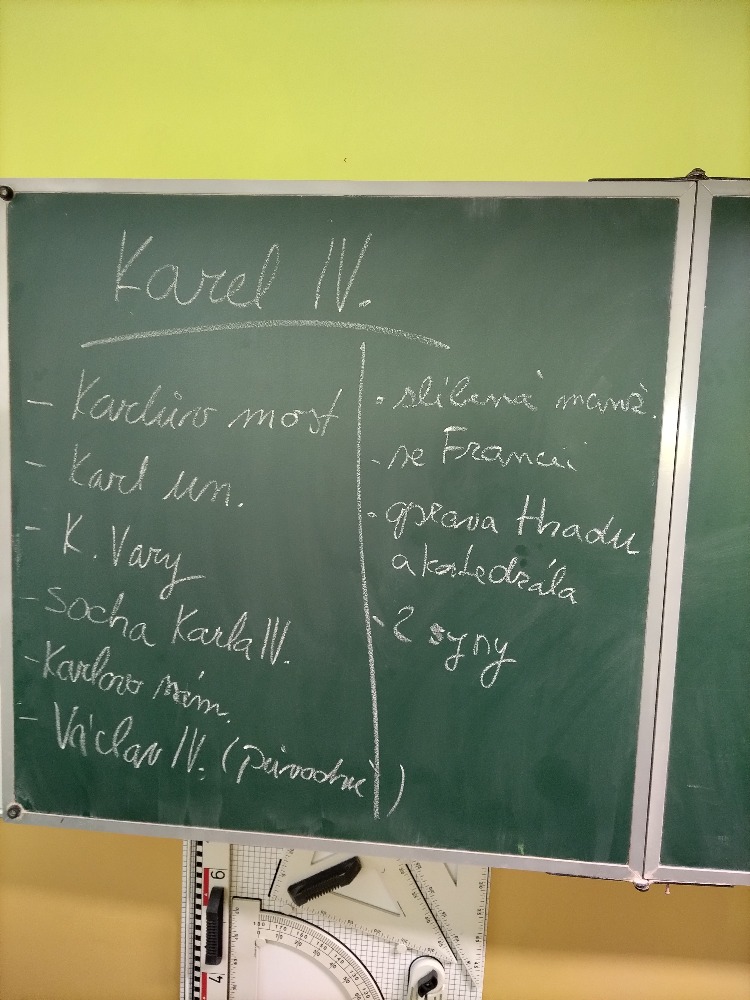 Karel IV.
- Karlův most
- Karl un.
- K. Vary
- Socha Karla IV.
- Karlovo nám.
- Václav IV. (původně)
- slíbená manž.
- ve Francii
- oprava Hradu
a katedrála
- 2 syny